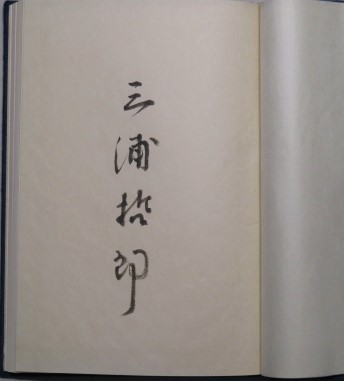 三浦哲郎